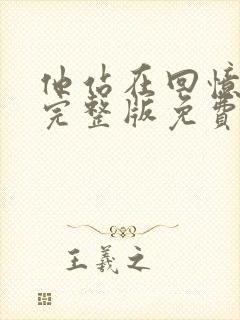 他站在回憶
完整版免費
王羲之